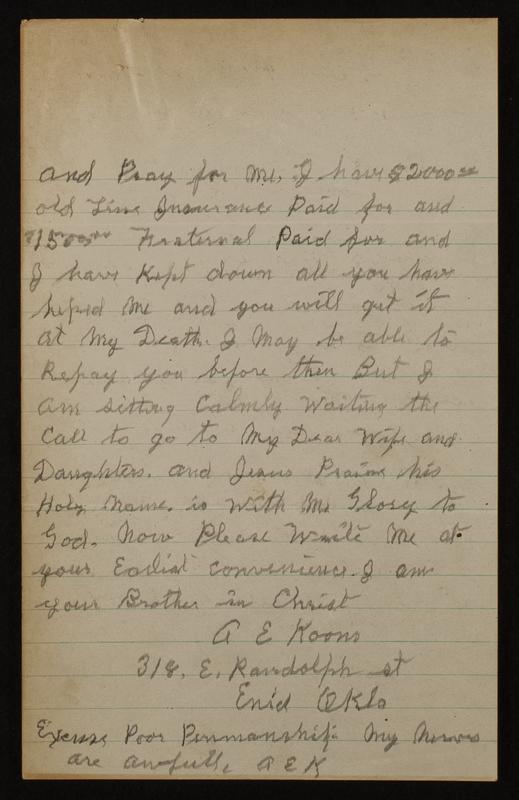 and Pray for Me, I have $2000.00
old Line Insurance Paid for and
$1500.00 Fraternal Paid for and
I have Kept down all you have
helped Me and you will get it
at My Death. I May be able to
Repay you before then But I
am sitting Calmly Waiting the
Call to go to My Dear Wife and
Daughters. and Jesus Praise his
Holy name. is With Me Glory to
God. Now Please Write Me at
your Earliest convenience. I am
your Brother in Christ
A E Koons
318. E. Randolph st
Enid Okla
Excuse Poor Penmanship My Nerves
are awful. A E K